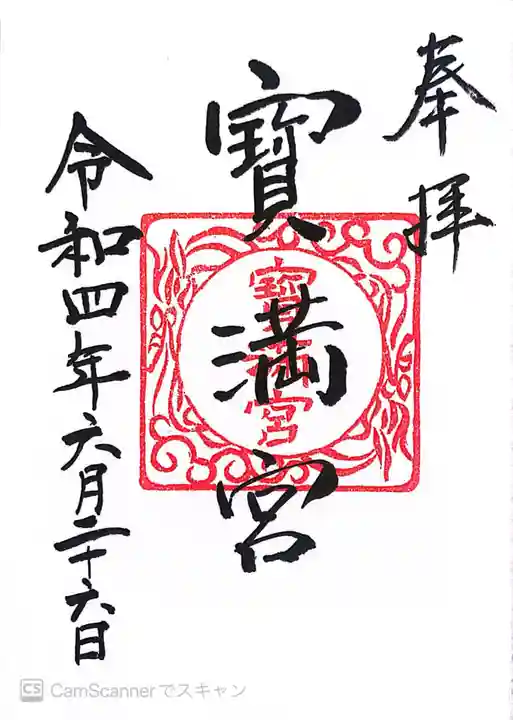 奉拝
寶満宮
寶満宮
令和四年六月二十六日
CS CamScannerでスキャン